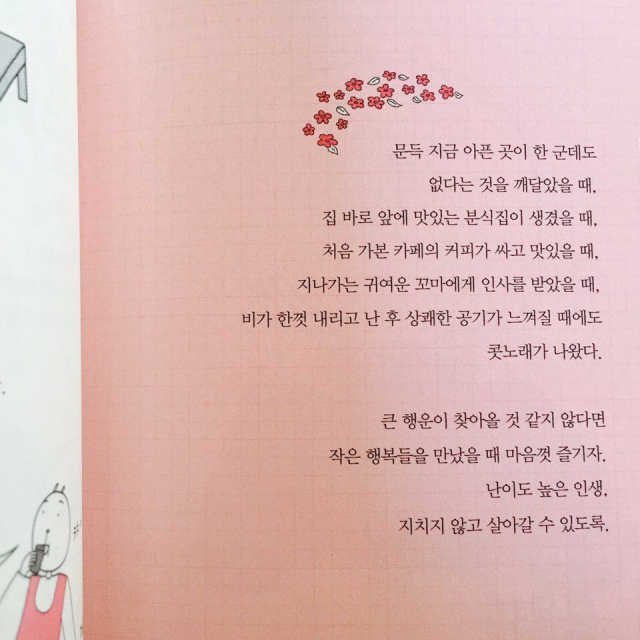 문득 지금 아픈 곳이 한 군데도
없다는 것을 깨달았을 때,
집 바로 앞에 맛있는 분식집이 생겼을 때,
처음 가본 카페의 커피가 싸고 맛있을 때,
지나가는 귀여운 꼬마에게 인사를 받았을 때,
비가 한껏 내리고 난 후 상쾌한 공기가 느껴질 때에도
콧노래가 나왔다.
큰 행운이 찾아올 것 같지 않다면
작은 행복들을 만났을 때 마음껏 즐기자.
난이도 높은 인생,
지치지 않고 살아갈 수 있도록.